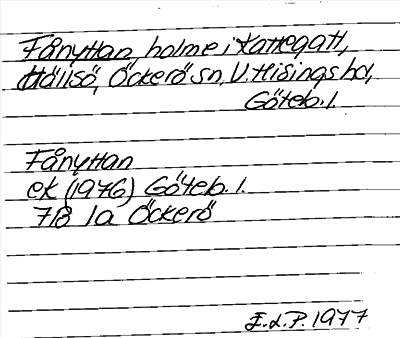 Fånyttan, holme i Kattegatt,
Hälisö, Öckerö sn, V. Hisings hd,
Göteb. l.
Fånyttan
ek (1976) Göteb. l.
7B 1a Öckerö
E.d.P. 1977